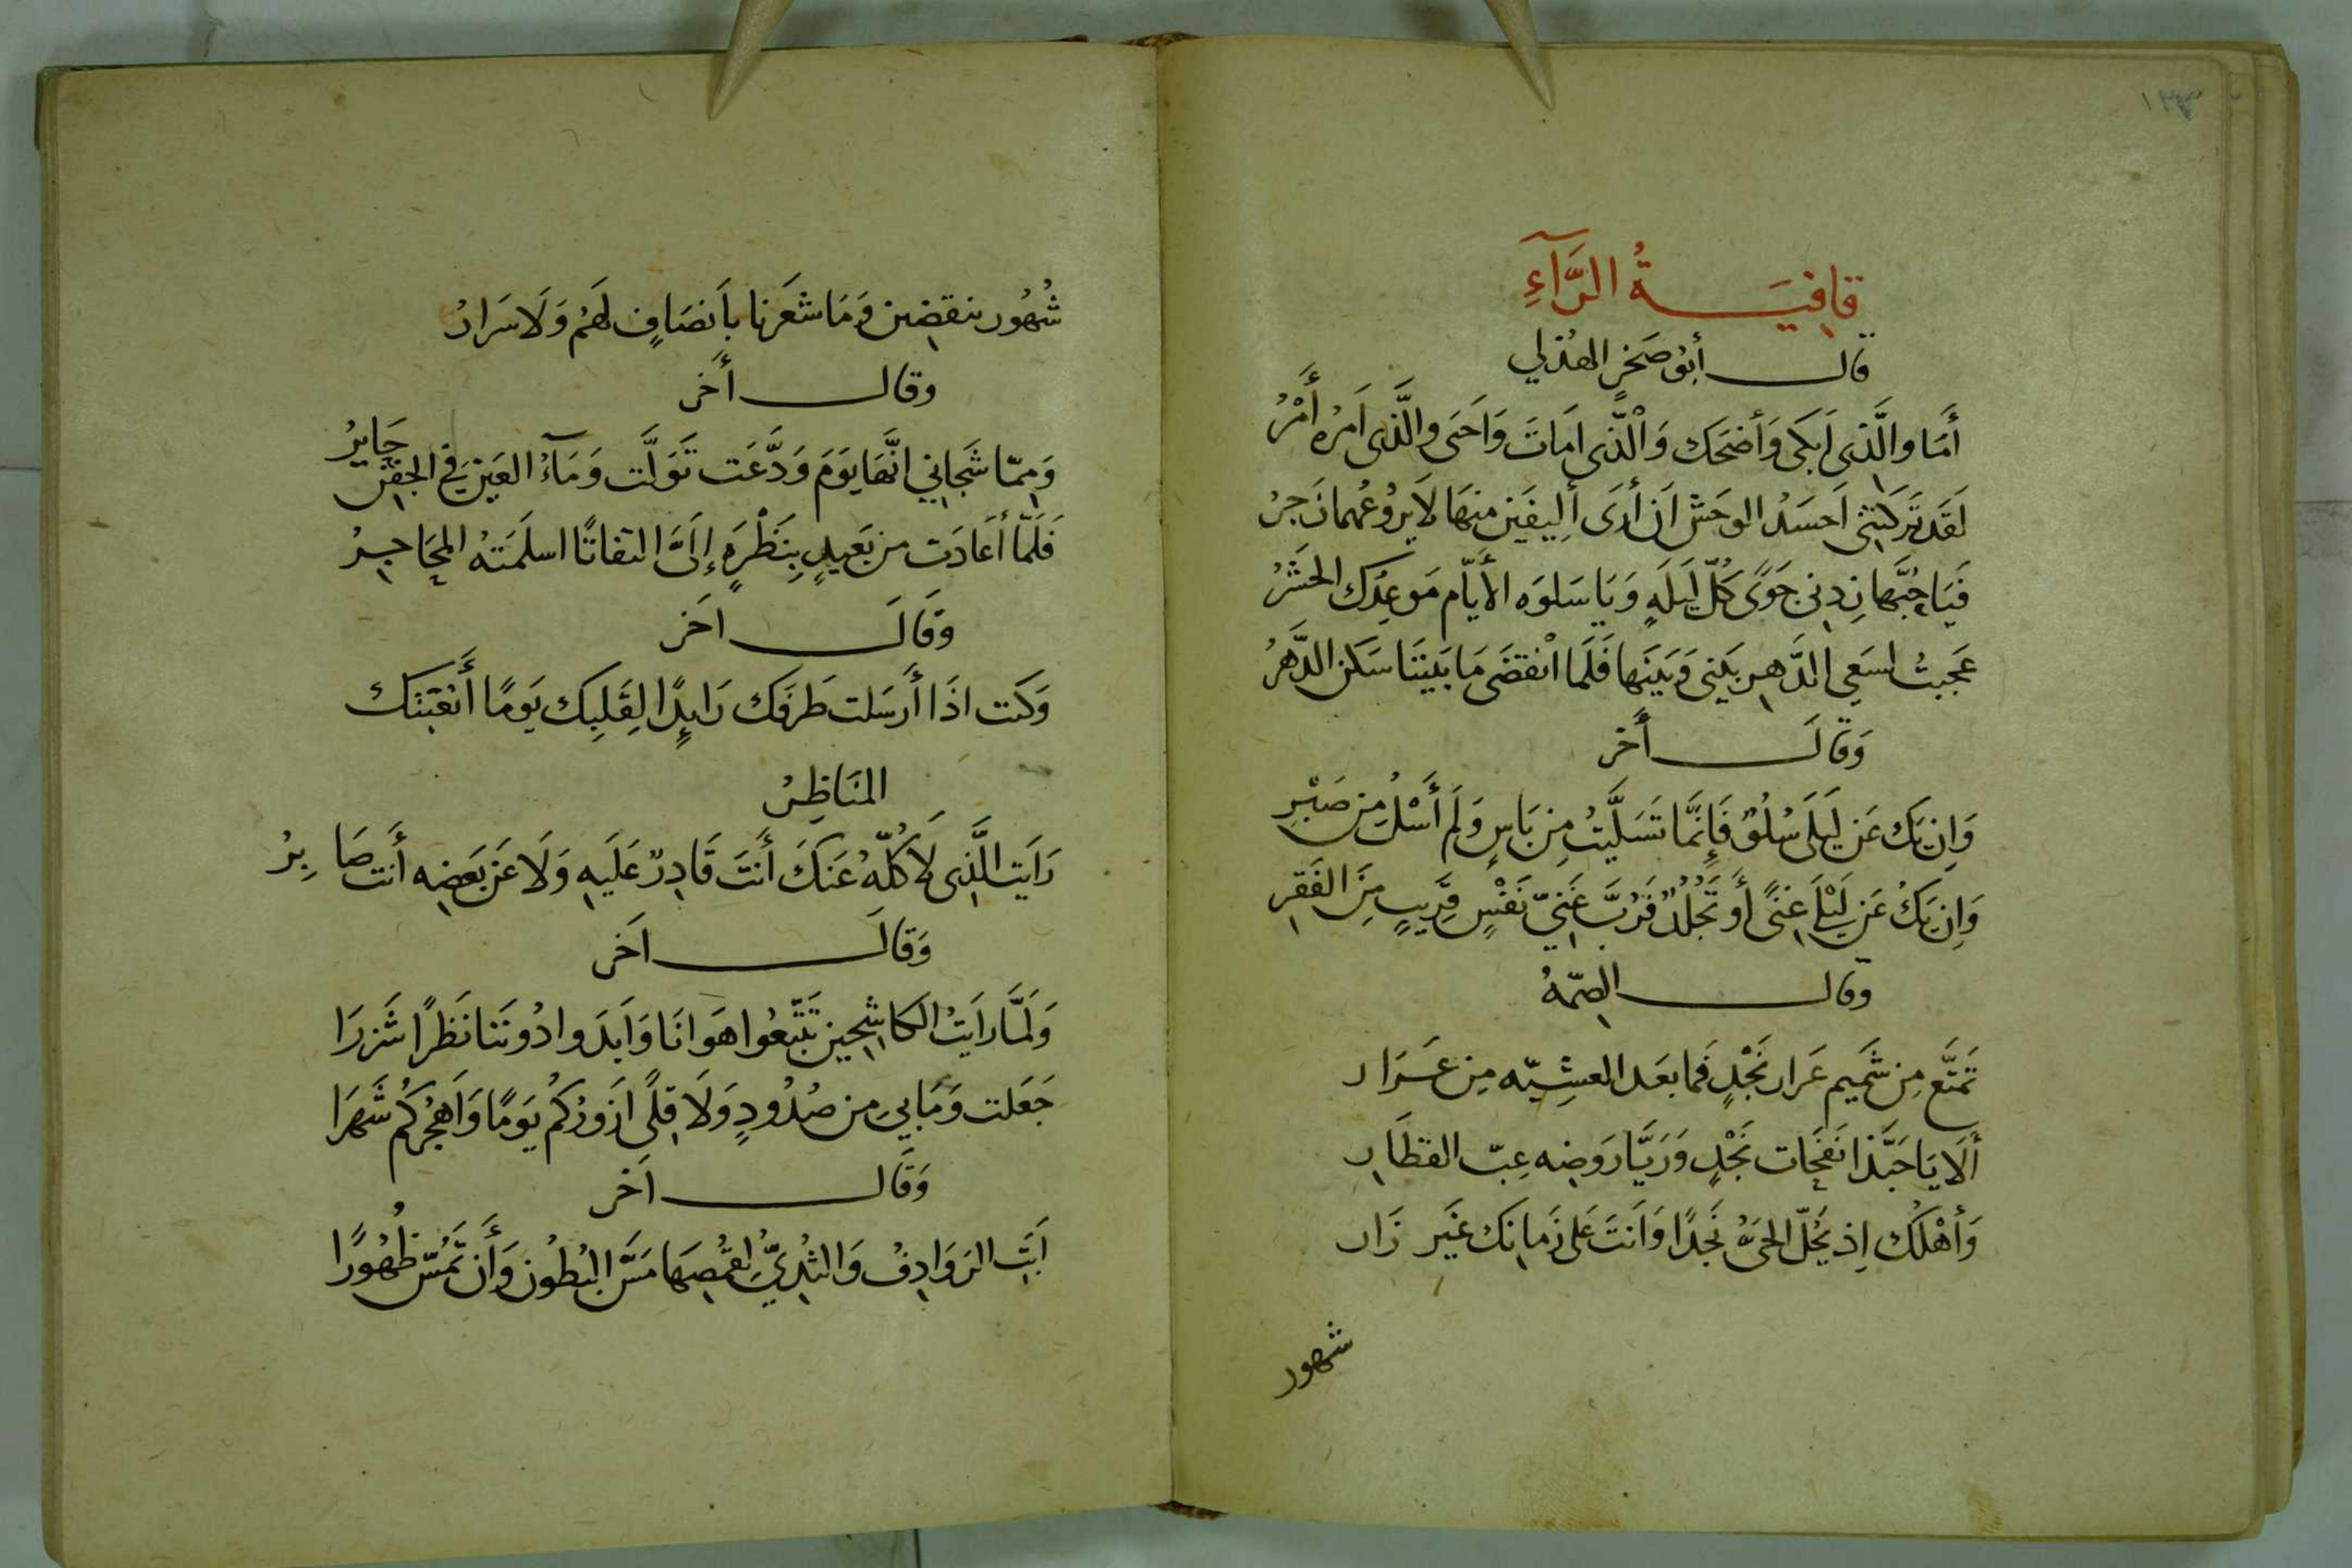 قَافِيَةُ الرَّآءِ
قال أبو صَخرٍ الهذلي
أَمَا والَّذِى اَبكَى وَأضحَك وَالّذى اَمَاتَ وَاَحيَى والَّذى اَمرُه أَمْرُ
لَقَد تَركَتنِى اَحسَدُ الوحَشَ اَن أرَى أَلِيفَين منهَا لاَ يرُوعُهمَا زجرُ
فَيَا حُبَّها زِدنى جَوًى كُلّ لَيلَهٍ وَيَا سَلوَه الأَيّام مَوعِدُك الحَشرُ
عَجبتُ لسَعِى الدَّهرِ بَينى وَبَينَها فَلَما انْقضَى مَا بَيننَا سَكن الدَّهرُ
وَقَالَ أَخر
وَاِن يَك عَن لَيلَى سُلُوٌّ فَإِنَّما تَسَلَّيتُ مِن يَاسٍ وَلَم أَسْلُ مِن صَبْرِ
وَاِن يَكُ عَن لَيْلَى غِنًى أَو تَجَلُّدٌ فَرُبَّ غَنِىّ نَفْسٍ قَرِيبٍ مِنَ الفَقرِ
وقال الصِمّهُ
تَمَتَّع مِن شَمِيم عَرار نَجْدٍ فَما بعَد العشِيّه مِن عَرَار
أَلَا يَا حَبَّذا نَفَحَات نَجْدٍ وَرَيَّا رَوَضِه غِبّ القطَارِ
وَأهْلُكَ اِذ يَحُلّ الحَىُّ نَجدًا وَاَنتَ عَلى زَمانِك غَير زَار
شهور
شُهُور ينقضِين وَمَا شعَرنا باَنصَافٍ لهَم وَلَا سَرارُ
وقال أَخر
وَمِمّا شَجَانِي انَّهَا يَوَمَ وَدَّعَت تَوَلَّت وَمَآءُ العَين فِي الجَفنِ حَايرُ
فَلَمّا أعَادَت من بَعَيدٍ بِنَظْرَهٍ إلَىَّ التفاتًا اسلَمَتهُ المحَاجِرُ
وَقَالَ اخَر
وَكَنت اذَا أَرسَلت طَرفَك رَايِدًا لِقَلبِك يَومًا أَتعَبَتك
المَنَاظِرُ
رَايَت الَّذِى لَا كُلّهُ عَنكَ أَنتَ قَادِرٌ عَلَيهِ وَلَا عَن بَعضِه أَنت صَابِرُ
وَقالَ اَخر
وَلَمَّا رَايَتُ الكَاشِحِين تَتَبَّعُوا هَوَانَا وَاَبدَوا دُونَنا نَظَرًا شَزرَا
جَعَلت وَمَا بِي مِن صُدُودٍ وَلَا قِلًى ازَورُكُم يَومًا وَاَهجُركُم شَهَرَا
وَقَال اَخر
اَبَتِ الرَوَادِفُ وَالثُدِيُّ لِقُمصِهَا مَسَّ البُطُون وَأَن تَمُسّ ظُهُورًا